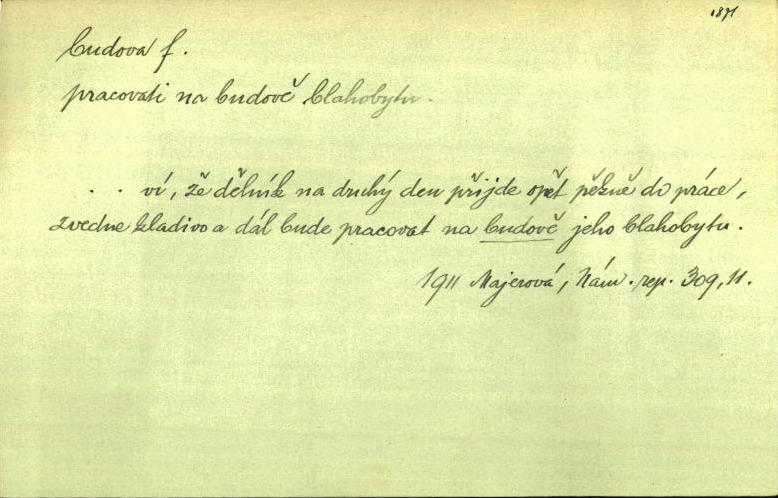 1871
budova f.
pracovati na budově blahobytu.
. . ví, že dělník na druhý den přijde opět pěkně do práce,
zvedne kladivo a dál bude pracovat na budově jeho blahobytu.
1911 Majerová, Nám. rep. 309, 11.